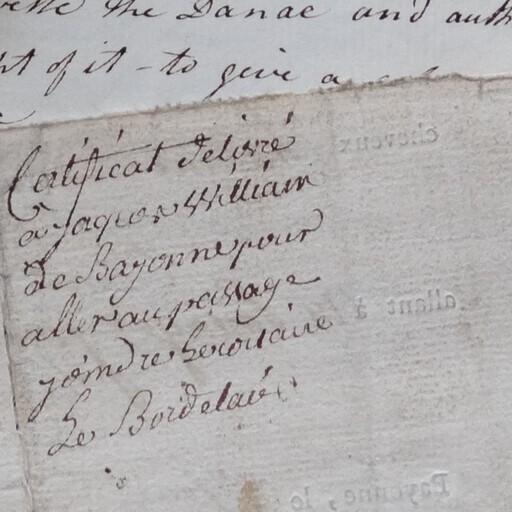 the Danae and auth
of it - to give a
Certificat delivré
à Jaques William
de Bayonne pour
aller au passage
joindre le corsaire
Le Bordelais
cheveux
allant à
Bayonne, le